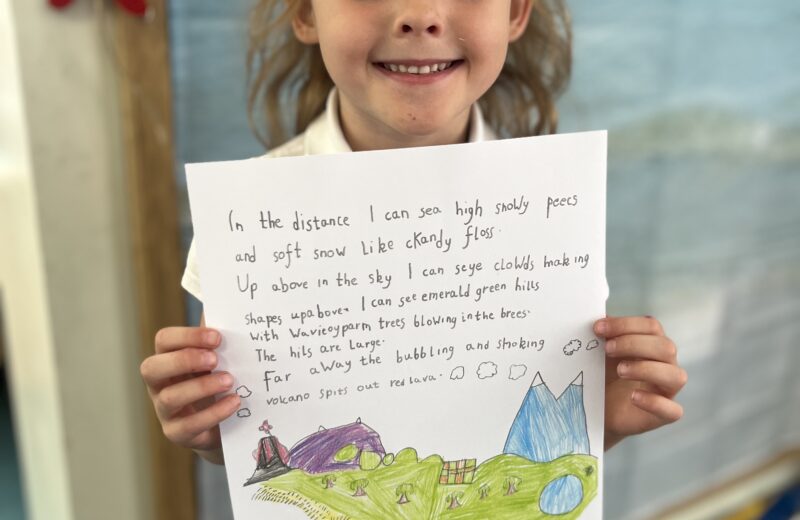 In the distance I can sea high snowly peecs
and soft snow like ckandy floss.
Up above in the sky I can seye clowds making
shapes upabove. I can see emerald green hills
with Wavieoy parm trees blowing in the brees.
The hils are large.
Far away the bubbling and smoking
volcano spits out red lava.